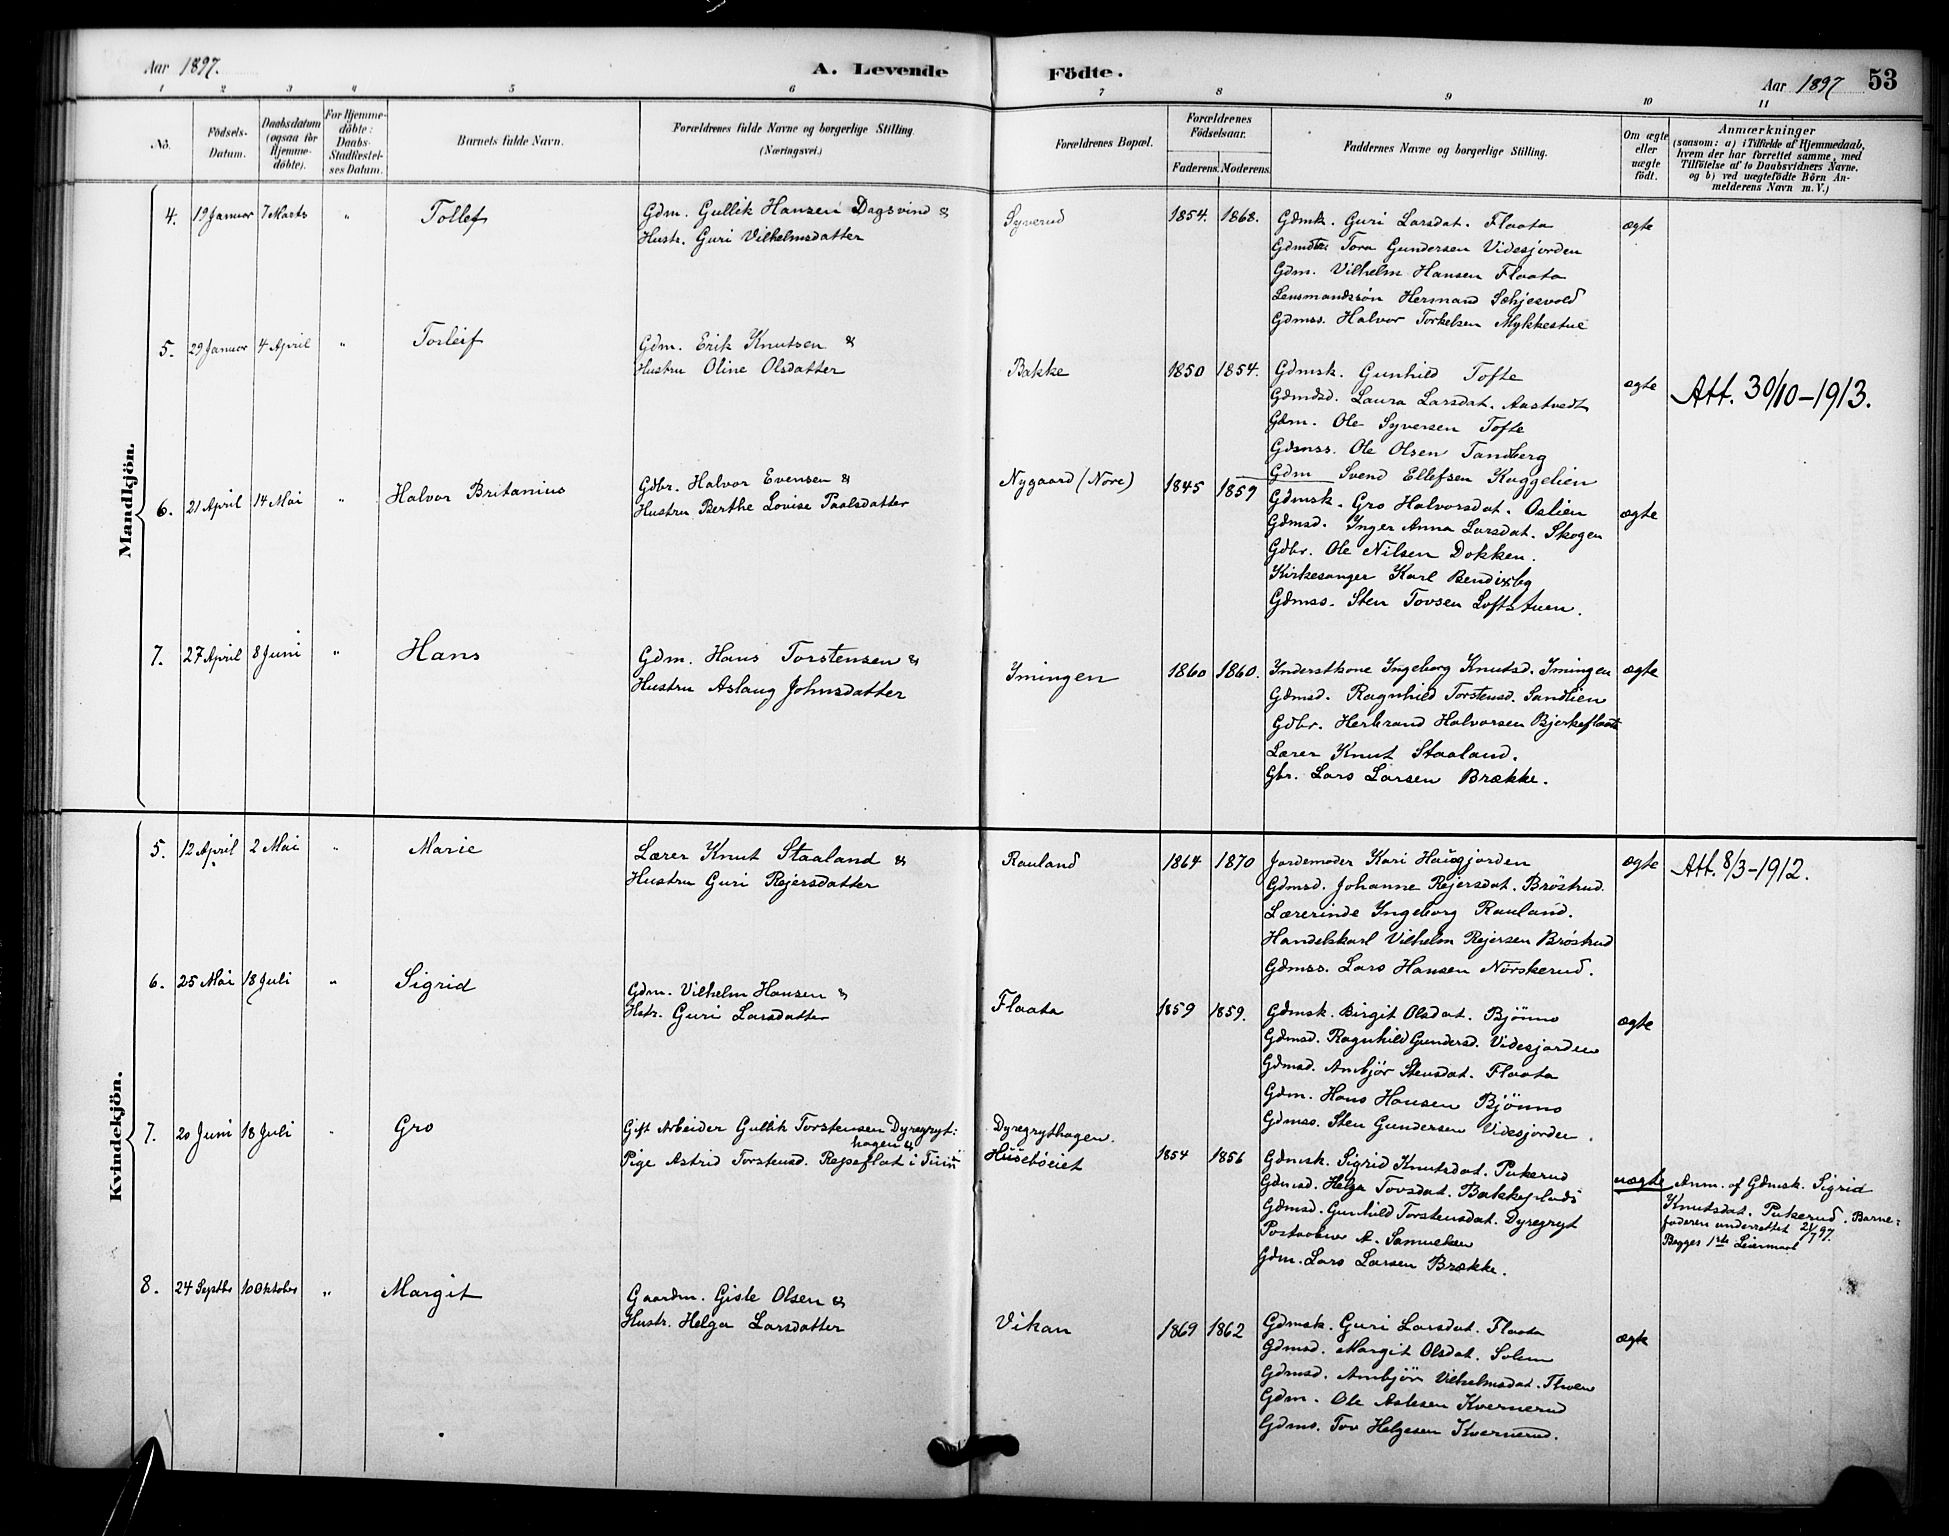 Aar 1897. A. Levende Födte. Aar 1897 53
1 2 3 4 5 6 7 8 9 10 11
No. Födsels-Datum. Daabsdatum (ogsaa for Hjemmedöbte). For Hjemmedöbte: Daabs-Stadfæstelses Datum. Barnets fulde Navn. Forældrenes fulde Navne og borgerlige Stilling. (Næringsvei.) Forældrenes Bopæl. Forældrenes Födselsaar. Faderens. Moderens. Faddernes Navne og borgerlige Stilling. Om ægte eller uægte födt. Anmærkninger (saasom: a) i Tilfælde af Hjemmedaab, hvem der har forrettet samme, med Tilföielse af to Daabsvidners Navne, og b) ved uægtefödte Börn Anmelderens Navn m. V.)
Mandkjön.
4. 19 Januar 7 Marts " Tollef
Gdm. Gullik Hansen Dagsvind &
Hustr. Guri Vilhelmsdatter
Syverud 1854. 1868.
Gdmsk. Guri Larsdat. Flaata
Gdmdtr. Tora Gundersen Videsjorden
Gdm. Vilhelm Hansen Flaata
Lensmandssön Hermand Schjesvold
Gdmss. Halvor Torkelsen Mykkestue
ægte
5. 29 Januar 4 April " Torleif
Gdm. Erik Knutsen &
Hustru Oline Olsdatter
Bakke 1850 1854.
Gdmsk. Gunhild Tofte
Gdmdsd. Laura Larsdat. Aastvedt
Gdm. Ole Syversen Tofte
Gdmss. Ole Olsen Tandberg
Gdm Svend Ellefsen Kaggelien
ægte
Att. 30/10-1913.
6. 21 April 14 Mai " Halvor Britanius
Gdbr. Halvor Evensen &
Hustru Berthe Lovise Paalsdatter
Nygaard (Nore) 1845 1859
Gdmsk. Gro Halvorsdat. Oslien
Gdmsd. Inger Anna Larsdat. Skogen
Gdbr. Ole Nilsen Dokken.
Kirkesanger Karl Bendixbg
Gdmss. Sten Tovsen Loftstuen.
ægte
7. 27 April 8 Juni " Hans
Gdm. Hans Torstensen &
Hustru Aslaug Johnsdatter
Imingen 1860 1860.
Inderstkone Ingeborg Knutsd. Imingen
Gdmsd. Ragnhild Torstensd. Sandlien
Gdbr. Herbrand Halvorsen Bjerkeflaata
Lærer Knut Staaland.
Gbr. Lars Larsen Brække.
ægte
Kvindekjön.
5. 12 April 2 Mai " Marie
Lærer Knut Staaland &
Hustru Guri Rejersdatter
Rauland 1864 1870
Jordemoder Kari Haugjorden
Gdmsd. Johanne Rejersdat. Bröstrud.
Lærerinde Ingeborg Rauland.
Handelskarl Vilhelm Rejersen Bröstrud
Gdmss. Lars Hansen Nörskerud.
ægte
Att. 8/3-1912.
6. 25 Mai 18 Juli " Sigrid
Gdm. Vilhelm Hansen &
Hstr. Guri Larsdatter
Flaata 1859 1859.
Gdmsk. Birgit Olsdat. Bjönno
Gdmsd. Ragnhild Gundersd. Videsjorden
Gdmsd. Ambjör Stensdat. Flaata
Gdm. Hans Hansen Bjönno
Gdmss. Sten Gundersen Videsjorden.
ægte
7. 20 Juni 18 Juli " Gro
Gift Arbeider Gullik Torstensen Dyregryt:
hagen &
Pige Astrid Torstensd. Rejseflat i Tinn
Dyregrythagen.
Huseböeiet 1854 1856
Gdmsk. Sigrid Knutsdat. Pukerud
Gdmsd. Helga Tovsdat. Bakkeplads
Gdmsd. Gunhild Torstensdat. Dyregryt
Postaabner A. Samuelsen
Gdm. Lars Larsen Brække.
uægte
Anm. af Gdmsk. Sigrid
Knutsdat. Pukerud. Barne-
faderen underrettet 21/7 97.
Begges 1ste Leiermaal
8. 24 Septbr 10 Oktober " Margit
Gaardm. Gisle Olsen &
Hustr. Helga Larsdatter
Vikan 1869 1862
Gdmsk. Guri Larsdat. Flaata
Gdmsd. Margit Olsdat. Solem
Gdmsd. Ambjör Vilhelmsdat.
Gdm. Ole Aslesen Kvernerud
Gdms. Tov Helgesen Kvernerud.
ægte